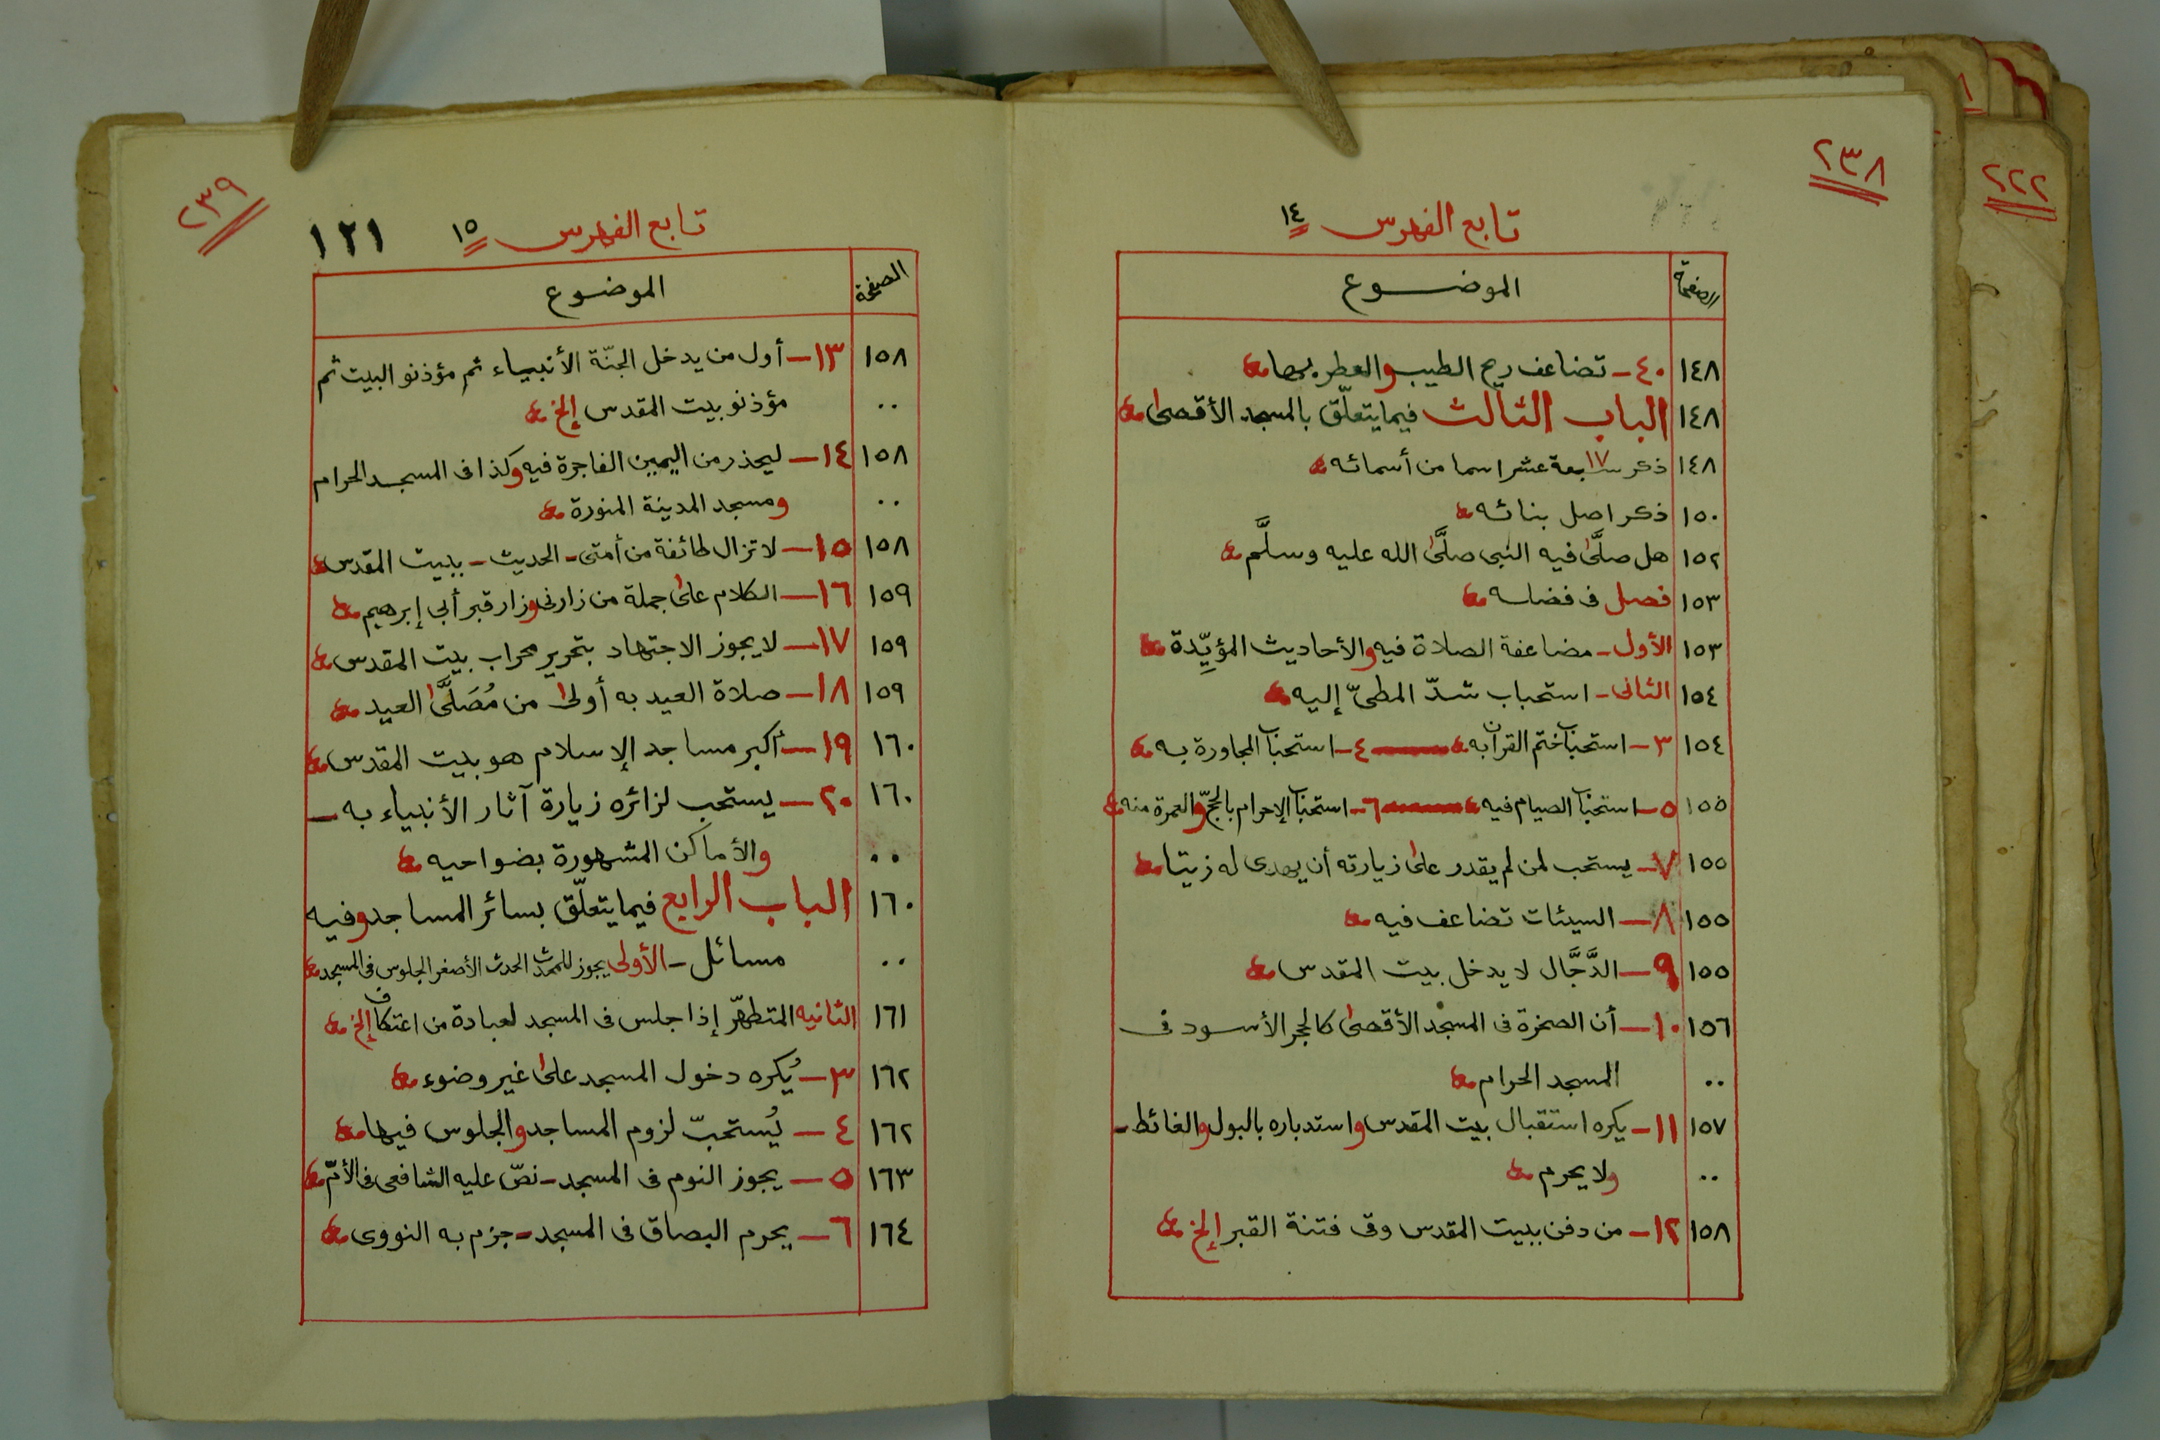 ٢٣٨
٢٢٢
تابع الفهرس ١٤
الصفحة الموضوع
١٤٨ ٤٠ـ تضاعف ريح الطيب والعطر بها
١٤٨ الباب الثالث فيما يتعلّق بالمسجد الأقصى
١٤٨ ذكر سبعة عشر ١٧ اسما من أسمائه
١٥٠ ذكر اصل بنائه
١٥٢ هل صلَّى فيه النبى صلَّى الله عليه وسلَّم
١٥٣ فصل فى فضله
١٥٣ الأول ـ مضاعفة الصلاة فيه والأحاديث المؤيِّدة
١٥٤ الثانى ـ استحباب شدّ المطىّ إليه
١٥٤ ٣ـ استحباب ختم القرآن به ٤ـ استحباب المجاورة به
١٥٥ ٥ـ استحباب الصيام فيه ٦ـ استحباب الإحرام بالحجّ والعمرة منه
١٥٥ ٧ـ يستحب لمن لم يقدر على زيارته أن يهدى له زيتا
١٥٥ ٨ـ السيئات تضاعف فيه
١٥٥ ٩ـ الدَّجَّال لا يدخل بيت المقدس
١٥٦ ١٠ـ أن الصخرة فى المسجد الأقصى كالحجر الأسود فى
٠٠ المسجد الحرام
١٥٧ ١١ـ يكره استقبال بيت المقدس واستدباره بالبول والغائط ـ
٠٠ ولا يحرم
١٥٨ ١٢ـ من دفن ببيت المقدس وقى فتنة القبر إلخ
٢٣٩
تابع الفهرس ١٥
١٢١
الصفحة الموضوع
١٥٨ ١٣ـ أول من يدخل الجنّة الأنبياء ثم مؤذنو البيت ثم
٠٠ مؤذنو بيت المقدس إلخ
١٥٨ ١٤ـ ليحذر من اليمين الفاجرة فيه وكذا فى المسجد الحرام
٠٠ ومسجد المدينة المنورة
١٥٨ ١٥ـ لا تزال طائفة من أمتى ـ الحديث ـ ببيت المقدس
١٥٩ ١٦ـ الكلام على جملة من زارنى وزار قبر أبى إبرهيم
١٥٩ ١٧ـ لا يجوز الاجتهاد بتحرير محراب بيت المقدس
١٥٩ ١٨ـ صلاة العيد به أولى من مُصَلَّى العيد
١٦٠ ١٩ـ أكبر مساجد الإسلام هو بيت المقدس
١٦٠ ٢٠ـ يستحب لزائره زيارة آثار الأنبياء به ـ
٠٠ والأماكن المشهورة بضواحيه
١٦٠ الباب الرابع فيما يتعلّق بسائر المساجد وفيه
٠٠ مسائل ـ الأولى يجوز للمحدث الحدث الأصغر الجلوس فى المسجد
١٦١ الثانيه المتطهّر إذا جلس فى المسجد لعبادة من اعتكاف إلخ
١٦٢ ٣ـ يُكره دخول المسجد على غير وضوء
١٦٢ ٤ـ يُستحبّ لزوم المساجد والجلوس فيها
١٦٣ ٥ـ يجوز النوم فى المسجد ـ نصّ عليه الشافعى فى الأمّ
١٦٤ ٦ـ يحرم البصاق فى المسجد ـ جزم به النووى